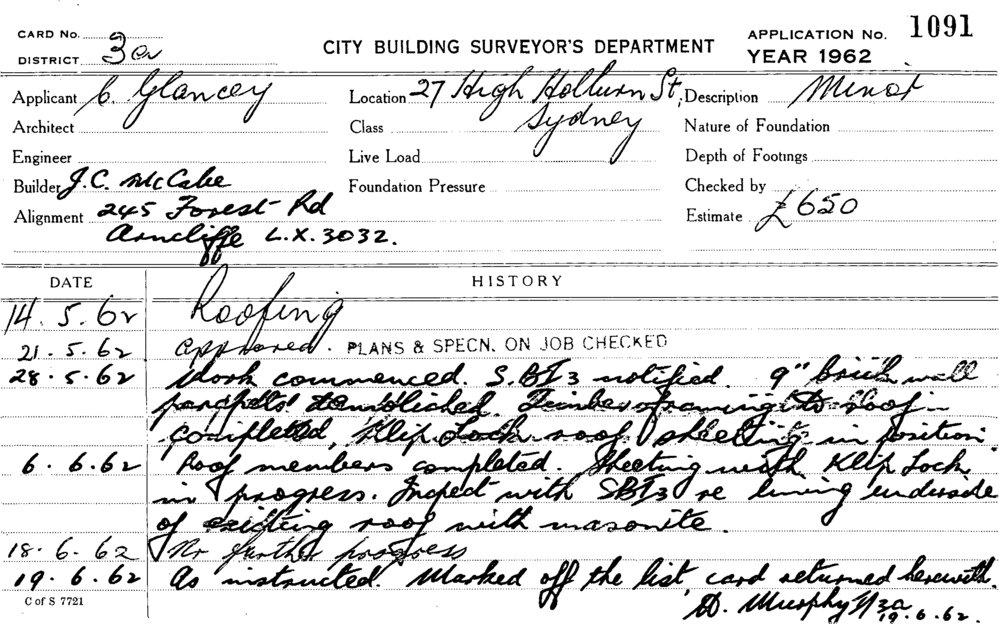 CARD No.
DISTRICT 3a
CITY BUILDING SURVEYOR'S DEPARTMENT
APPLICATION No. 1091
YEAR 1962
Applicant C. Glancey
Location 27 High Holburn St,
Sydney
Description Minor
Architect
Class
Nature of Foundation
Engineer
Live Load
Depth of Footings
Builder J.C. McCabe
Foundation Pressure
Checked by
Alignment 245 Forest Rd
Arncliffe L.X.3032.
Estimate £650
DATE HISTORY
14.5.62 Roofing
21.5.62 approved. PLANS & SPECN. ON JOB CHECKED
28.5.62 Work commenced. S.BI3 notified. 9" brick wall
parapets demolished. Timber framing to roof
completed, Klip Lock roof sheeting in position
6.6.62 Roof members completed. Sheeting with Klip Lock
in progress. Inspect with SBI3 re lining underside
of existing roof with masonite.
18.6.62 No further progress
19.6.62 As instructed. Marked off the list, card returned herewith.
D. Murphy 3a
19.6.62.
C of S 7721